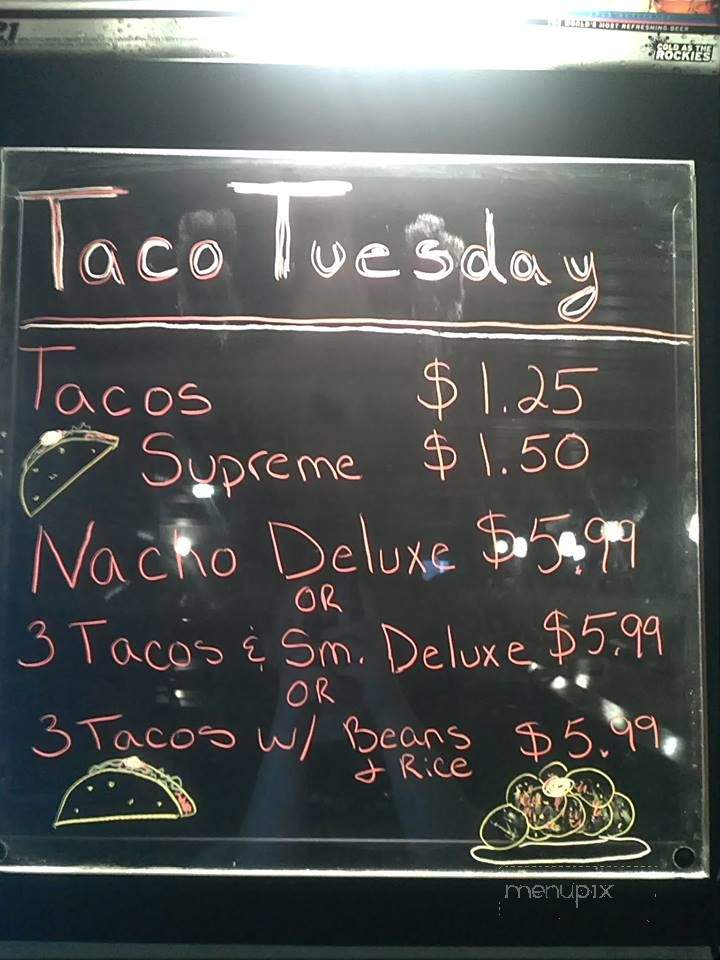 21
THE WORLD'S MOST REFRESHING BEER
COLD AS THE
ROCKIES
Taco Tuesday
Tacos $1.25
Supreme $1.50
Nacho Deluxe $5.99
OR
3 Tacos & Sm. Deluxe $5.99
OR
3 Tacos w/ Beans $5.99
& Rice
menupix